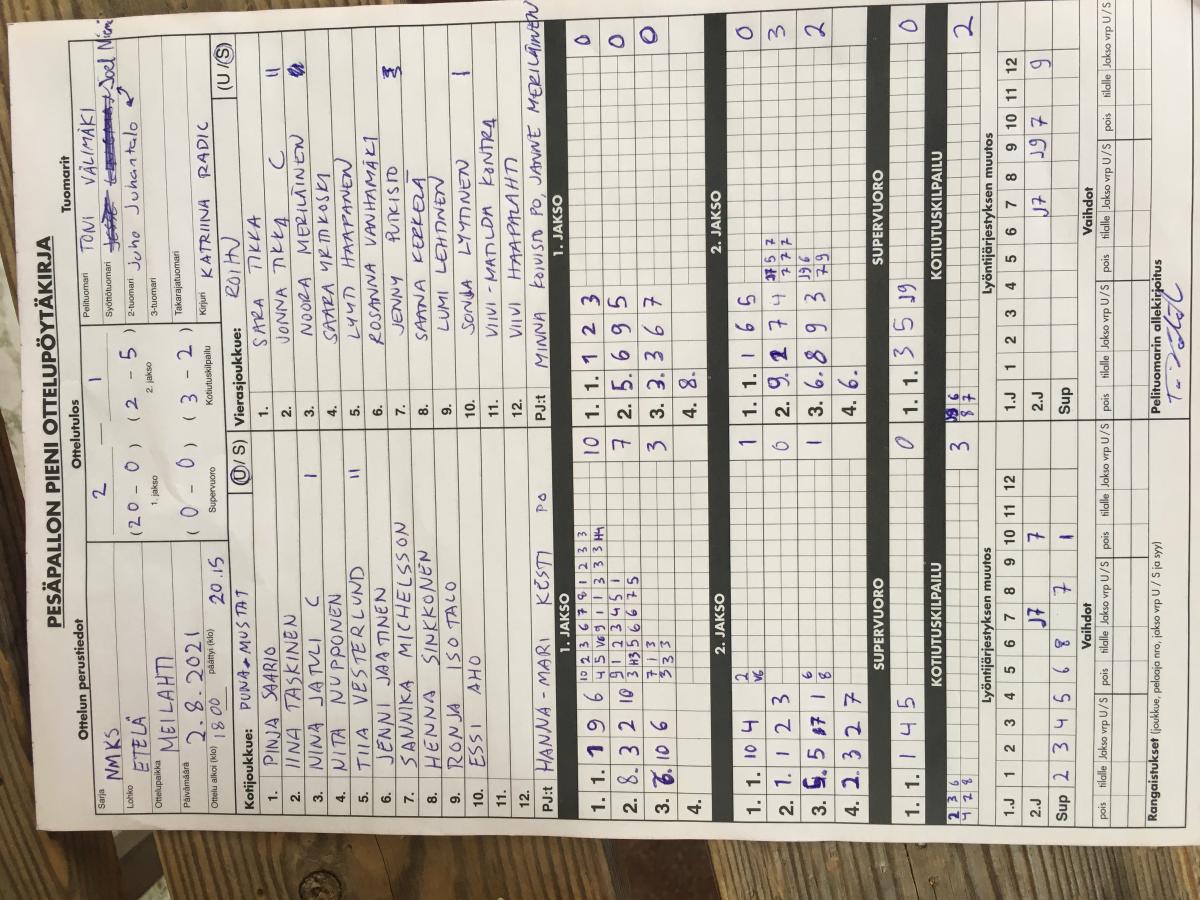 PESÄPALLON PIENI OTTELUPÖYTÄKIRJA
Ottelun perustiedot
Sarja NMKS
Lohko ETELÄ
Ottelupaikka MEILAHTI
Päivämäärä 2.8.2021
Ottelu alkoi (klo) 18.00 päättyi (klo) 20.15
Ottelutulos
2 1
(20 - 0) (2 - 5)
1. jakso 2. jakso
(0 - 0) (3 - 2)
Supervuoro Kotiutuskilpailu
Tuomarit
Pelituomari TONI VÄLIMÄKI
Syöttötuomari
2-tuomari Juho Juhantalo
3-tuomari
Takarajatuomari
Kirjuri KATRIINA RADIC
Kotijoukkue: PUNA-MUSTAT (U/S)
1. PINJA SAARIO
2. IINA TASKINEN
3. NIINA JATULI C I
4. NITA NUPPONEN
5. TIIA VESTERLUND II
6. JENNI JAATINEN
7. SANNIKA MICHELSSON
8. HENNA SINKKONEN
9. RONJA ISOTALO
10. ESSI AHO
11.
12.
PJ:t HANNA-MARI KESTI PO
Vierasjoukkue: ROIHU (U/S)
1. SARA TIKKA
2. JONNA TIKKA C II
3. NOORA MERILÄINEN
4. SAARA YRTIKOSKI
5. LYYTI HAAPANEN
6. ROSANNA VANHAMÄKI
7. JENNY PUTKISTO 3
8. SAANA KERKELÄ
9. LUMI LEHTINEN
10. SONJA LYYTINEN I
11. VIIVI-MATILDA KONTRA
12. VIIVI HAAPALAHTI
PJ:t MINNA KOIVISTO PO, JANNE MERILÄINEN
1. JAKSO
1. 1. 1 9 6 10 2 3 6 7 8 1 2 3 3 10
4 5 V6 9 1 1 3 3 3 H4
2. 8. 3 2 10 9 1 2 3 4 5 1 7
3 H3 5 6 6 7 5
3. 6. 10 6 7 1 3 3
3 3 3
4.
1. JAKSO
1. 1. 1 2 3 0
2. 5. 6 9 5 0
3. 3. 3 6 7 0
4. 8.
2. JAKSO
1. 1. 10 4 2 1
V6
2. 1. 1 2 3 0
3. 5. 5 1 6 1
8
4. 2. 3 2 7
2. JAKSO
1. 1. 1 6 5 0
2. 9. 2 7 4 5 7 3
7 7 7
3. 6. 8 9 3 J9 6 2
7 9
4. 6.
SUPERVUORO
1. 1. 1 4 5 0
SUPERVUORO
1. 1. 3 5 J9 0
KOTIUTUSKILPAILU
2 3 6 3
4 2 8
KOTIUTUSKILPAILU
6 2
8 7
Lyöntijärjestyksen muutos
1.J 1 2 3 4 5 6 7 8 9 10 11 12
2.J J7 7
Sup 2 3 4 5 6 8 7 1
Lyöntijärjestyksen muutos
1.J 1 2 3 4 5 6 7 8 9 10 11 12
2.J J7 J9 7 9
Sup
Vaihdot
pois tilalle Jakso vrp U/S pois tilalle Jakso vrp U/S pois tilalle Jakso vrp U/S
Vaihdot
pois tilalle Jakso vrp U/S pois tilalle Jakso vrp U/S pois tilalle Jakso vrp U/S
Rangaistukset (joukkue, pelaaja nro, jakso vrp U / S ja syy)
Pelituomarin allekirjoitus